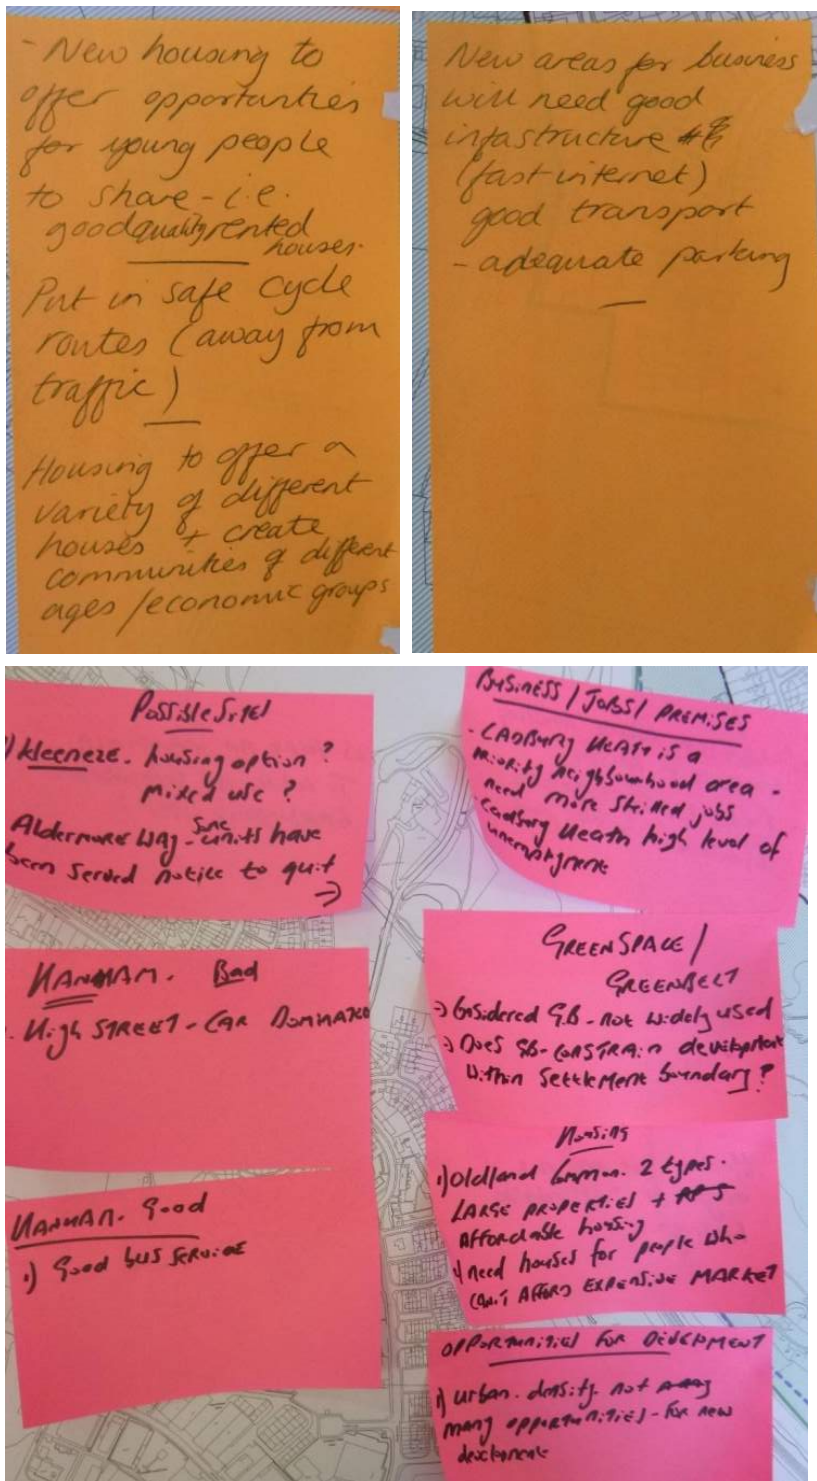 - New housing to
offer opportunities
for young people
to share - i.e.
good quality rented
houses.
Put in safe cycle
routes (away from
traffic)
Housing to offer a
variety of different
houses + create
communities of different
ages / economic groups
New areas for business
will need good
infastructure
(fast internet)
good transport
- adequate parking
Possible Sites
1) Kleeneze. housing option?
mixed use?
Aldermoor Way - some units have
been served notice to quit
→
BUSINESS / JOBS / PREMISES
- CADBURY HEATH is a
priority neighbourhood area -
need more skilled jobs
Cadbury Heath high level of
unemployment
HANHAM. Bad
. High STREET - CAR DOMINATED
GREENSPACE /
GREENBELT
→ Considered G.B - not widely used
→ Does GB - CONSTRAIN development
within settlement boundary?
HANHAM. Good
1) Good bus SERVICE
Housing
1) Oldland Common. 2 types.
LARGE PROPERTIES +
AFFordable housing
1) need houses for people who
CAN'T AFFORD EXPENSIVE MARKET
OPPORTUNITIES FOR DEVELOPMENT
1) urban. density. not
many opportunities - for new
development